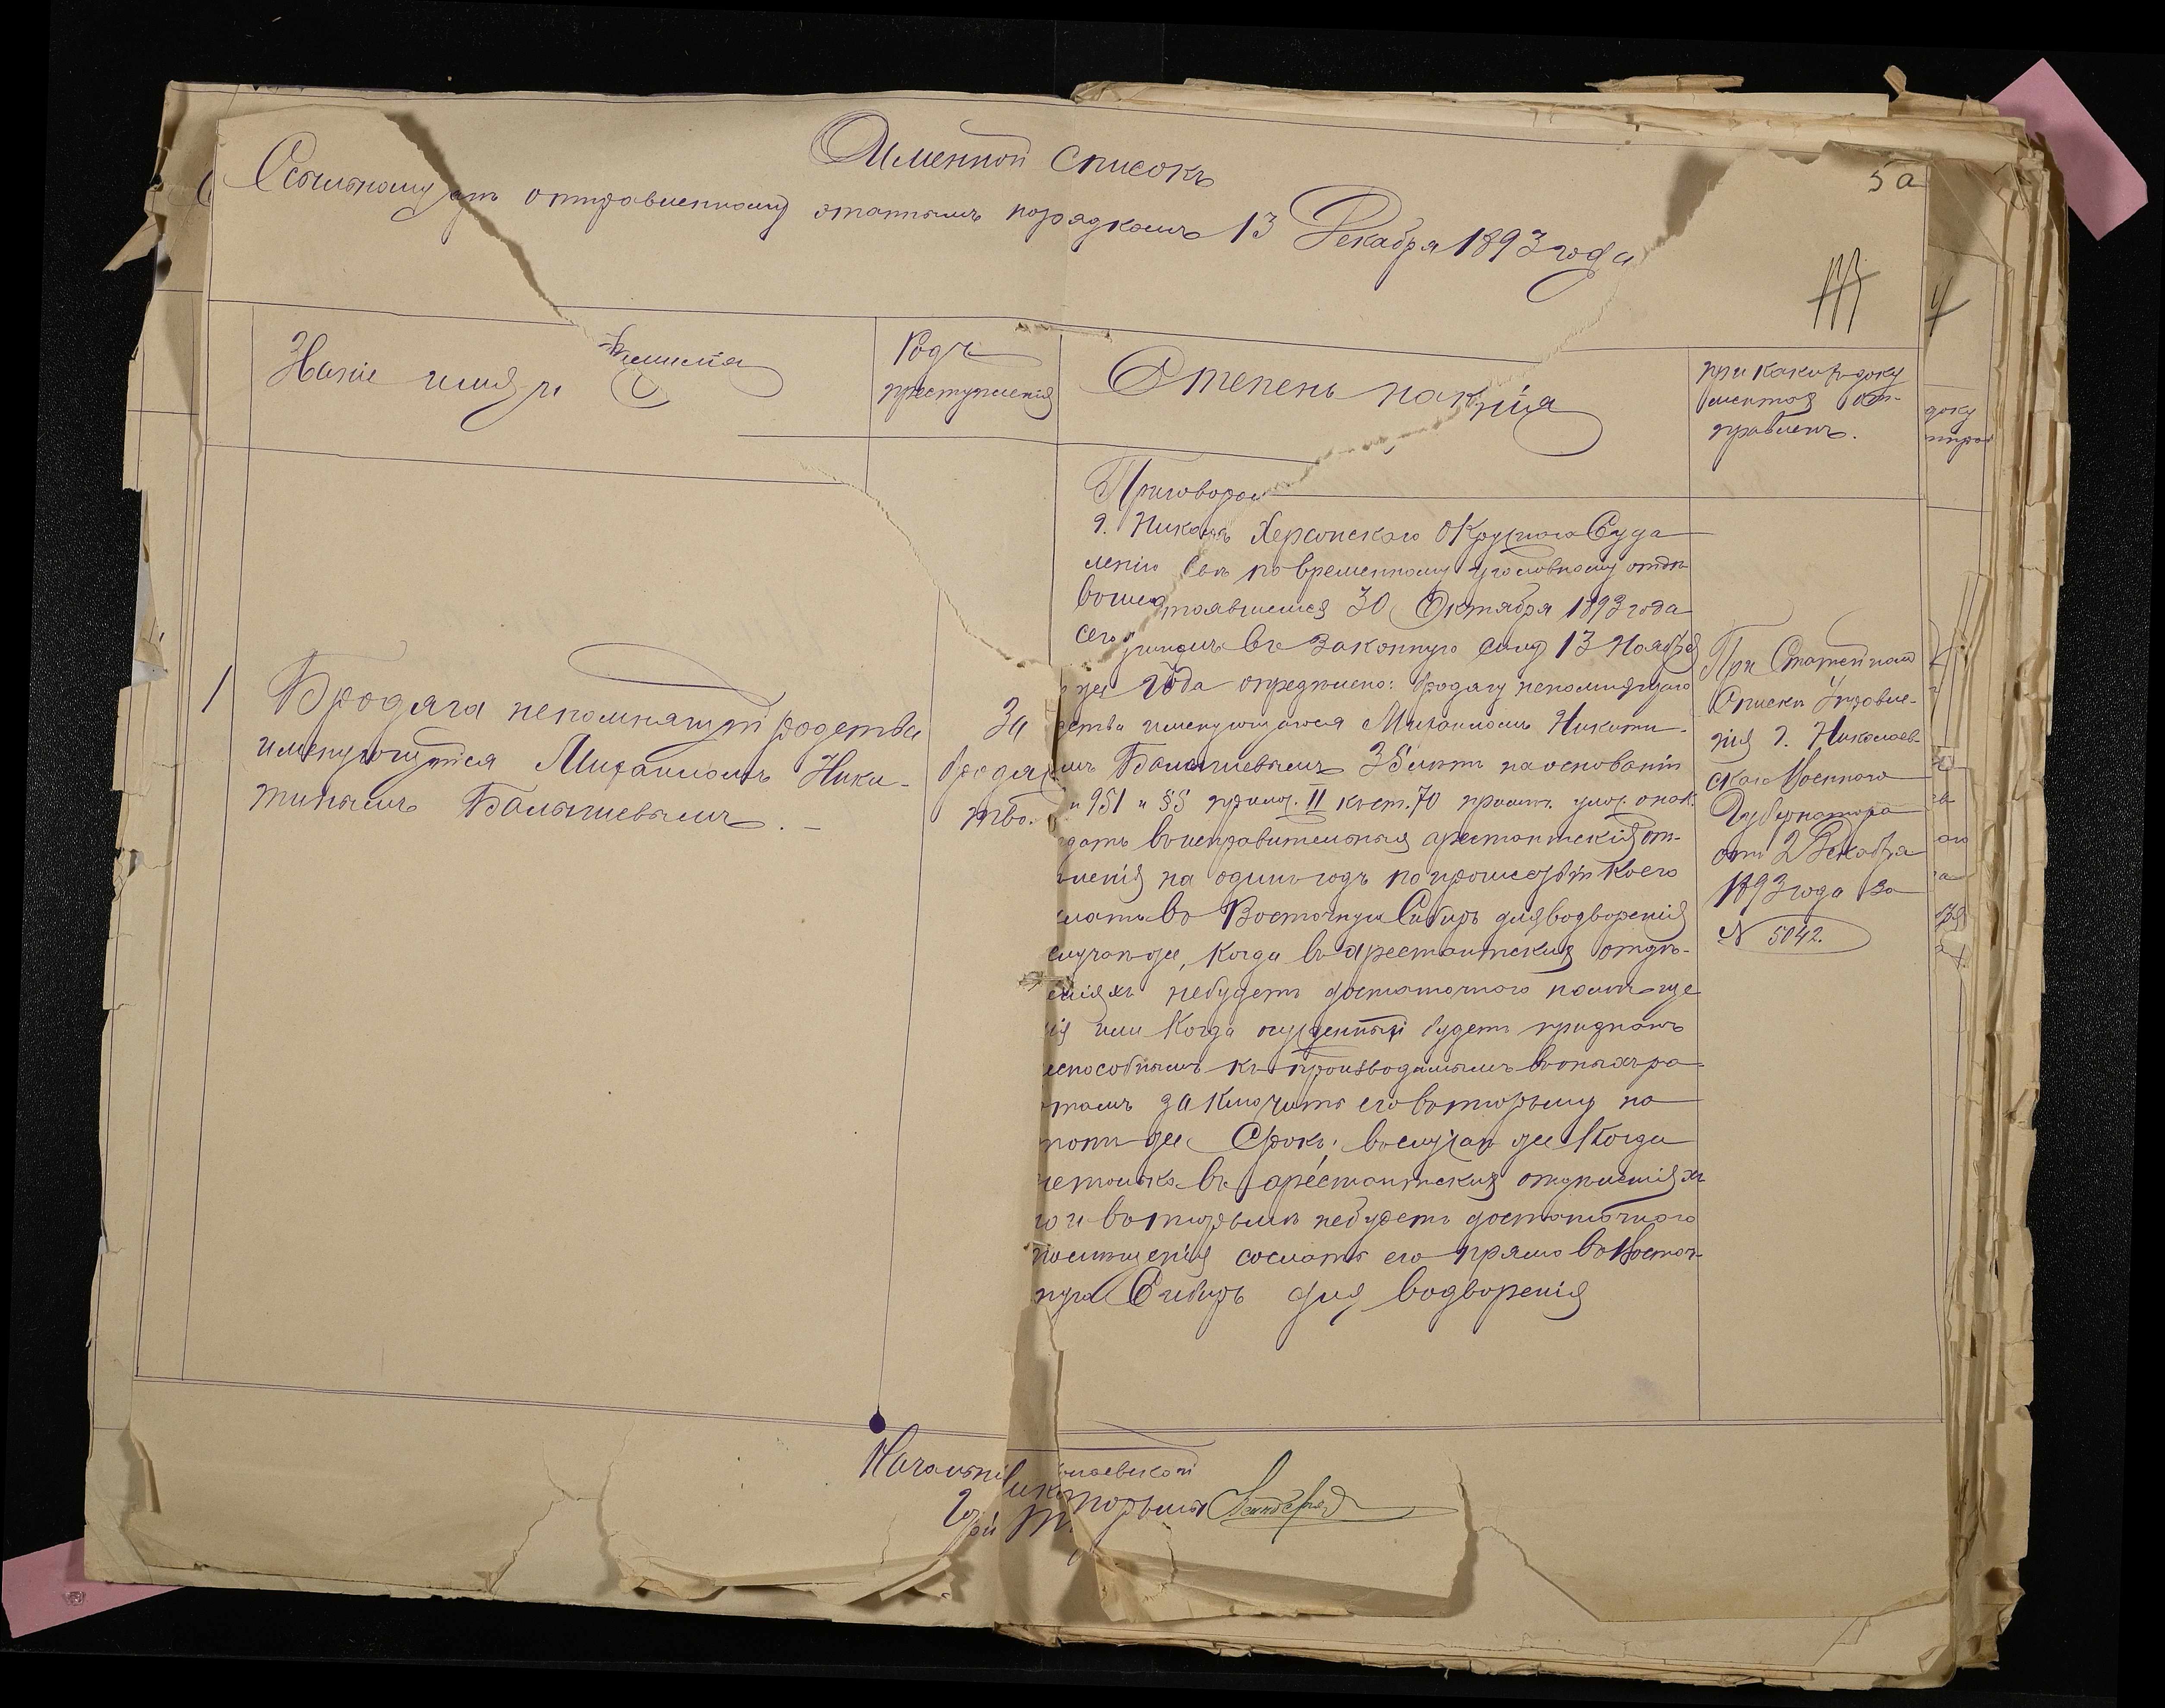 Именной списокъ
Ссыльному отправленному этапнымъ порядкомъ 13 Декабря 1893 года
5а
Званіе имя и фамилія
Родъ
преступленія
Степень нак нія
при какихъ доку
ментахъ от-
правленъ.
1
Бродяга непомнящій родства
именующійся Михаиломъ Ники-
тинымъ Балышевымъ. –
За
бродяж
тво.
Приговоромъ
г. Никол Херсонскаго Окружнаго Суда
ленію по временному уголовному отдѣ
вшемся 30 Октября 1893 года
сего въ законную силу 13 Ноября
же года опредѣлено: бродягу непомнящаго
ства именующагося Михаиломъ Никити-
мъ Балышевымъ 38 лѣтъ на основаніи
и 951 и §5 прилож. II къ ст. 70 улож. о нак.
дать въ исправительныя арестантскія от-
ленія на одинъ годъ по прошествіи коего
слать въ Восточную Сибирь для водворенія
случаѣ же, когда въ арестантскихъ отдѣ-
еніяхъ небудетъ достаточнаго помѣще
ія или когда осужденный будетъ признанъ
способнымъ къ производимымъ въ оныхъ ра-
отамъ заключить его въ тюрьму на
тотъ же срокъ; въ случаѣ же когда
не только въ арестантскихъ отдѣленіяхъ
но и въ тюрьмѣ небудетъ достаточнаго
помѣщенія сослать его прямо въ Восточ-
ную Сибирь для водворенія
При Статейномъ
Спискѣ Управле-
нія г. Николаев-
скаго Военнаго
Губернатора
отъ 2 Декабря
1893 года за
№ 5042.
Начальни лаевской
тюрьмы